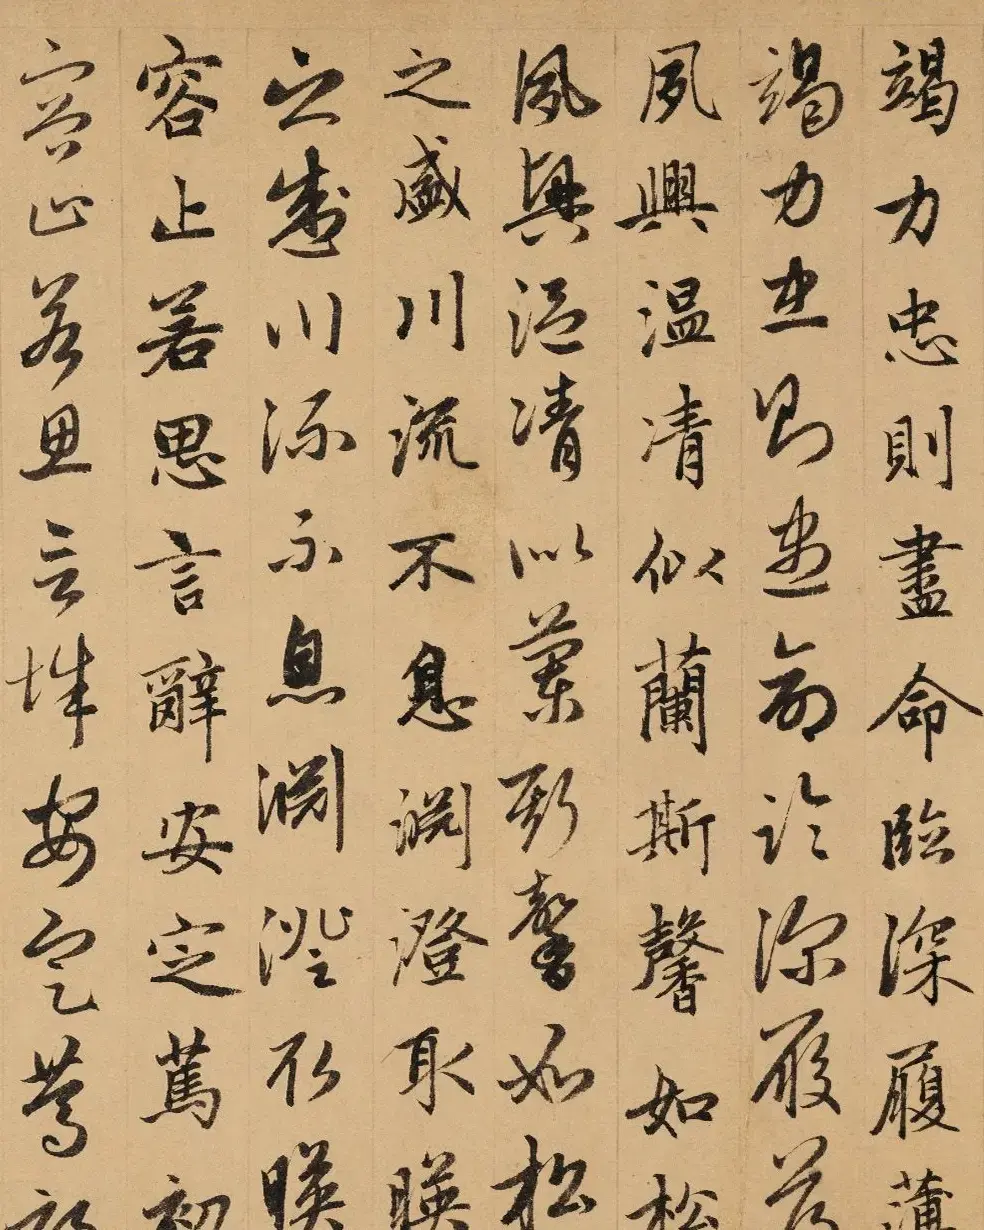 竭力忠則盡命臨深履薄
竭力忠則盡命臨深履薄
夙興温凊似蘭斯馨如松
夙興温凊似蘭斯馨如松
之盛川流不息淵澄取暎
之盛川流不息淵澄取暎
容止若思言辭安定篤初
容止若思言辭安定篤初